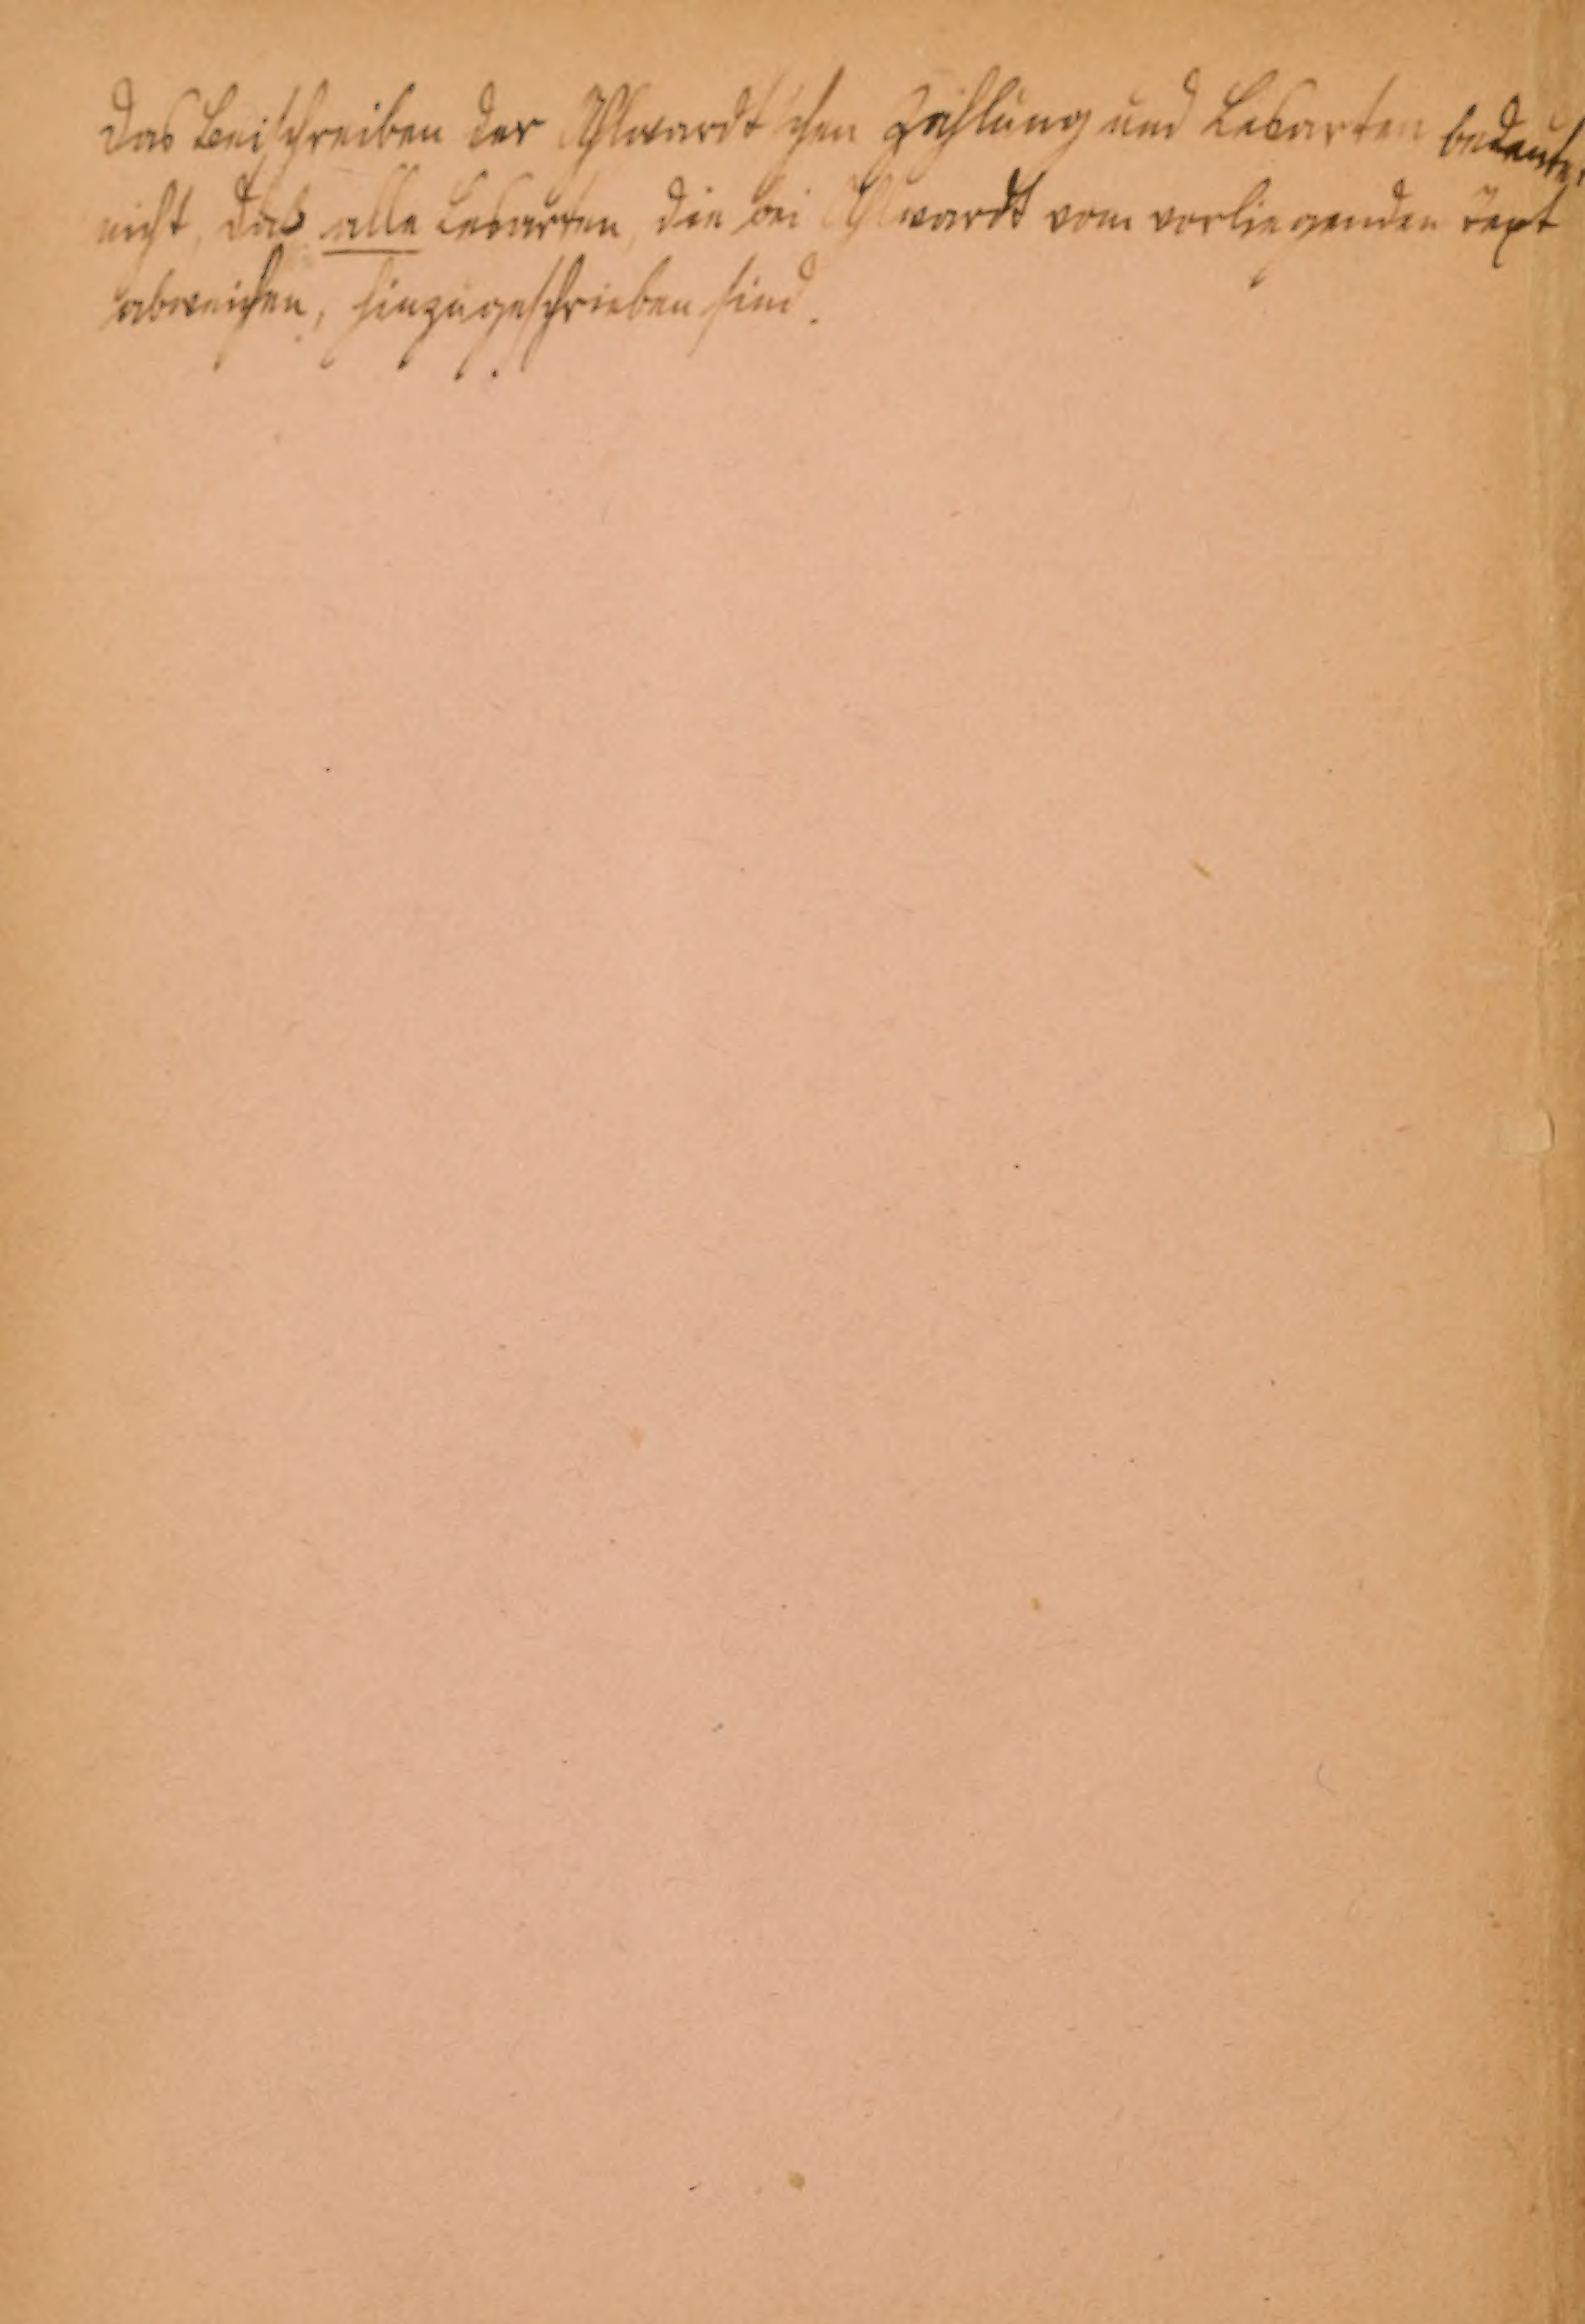 Das Beischreiben der Ahlwardt'schen Zählung und Lesarten bedeutet
nicht, daß alle Lesarten, die bei Ahlwardt vom vorliegenden Text
abweichen, hinzugeschrieben sind.